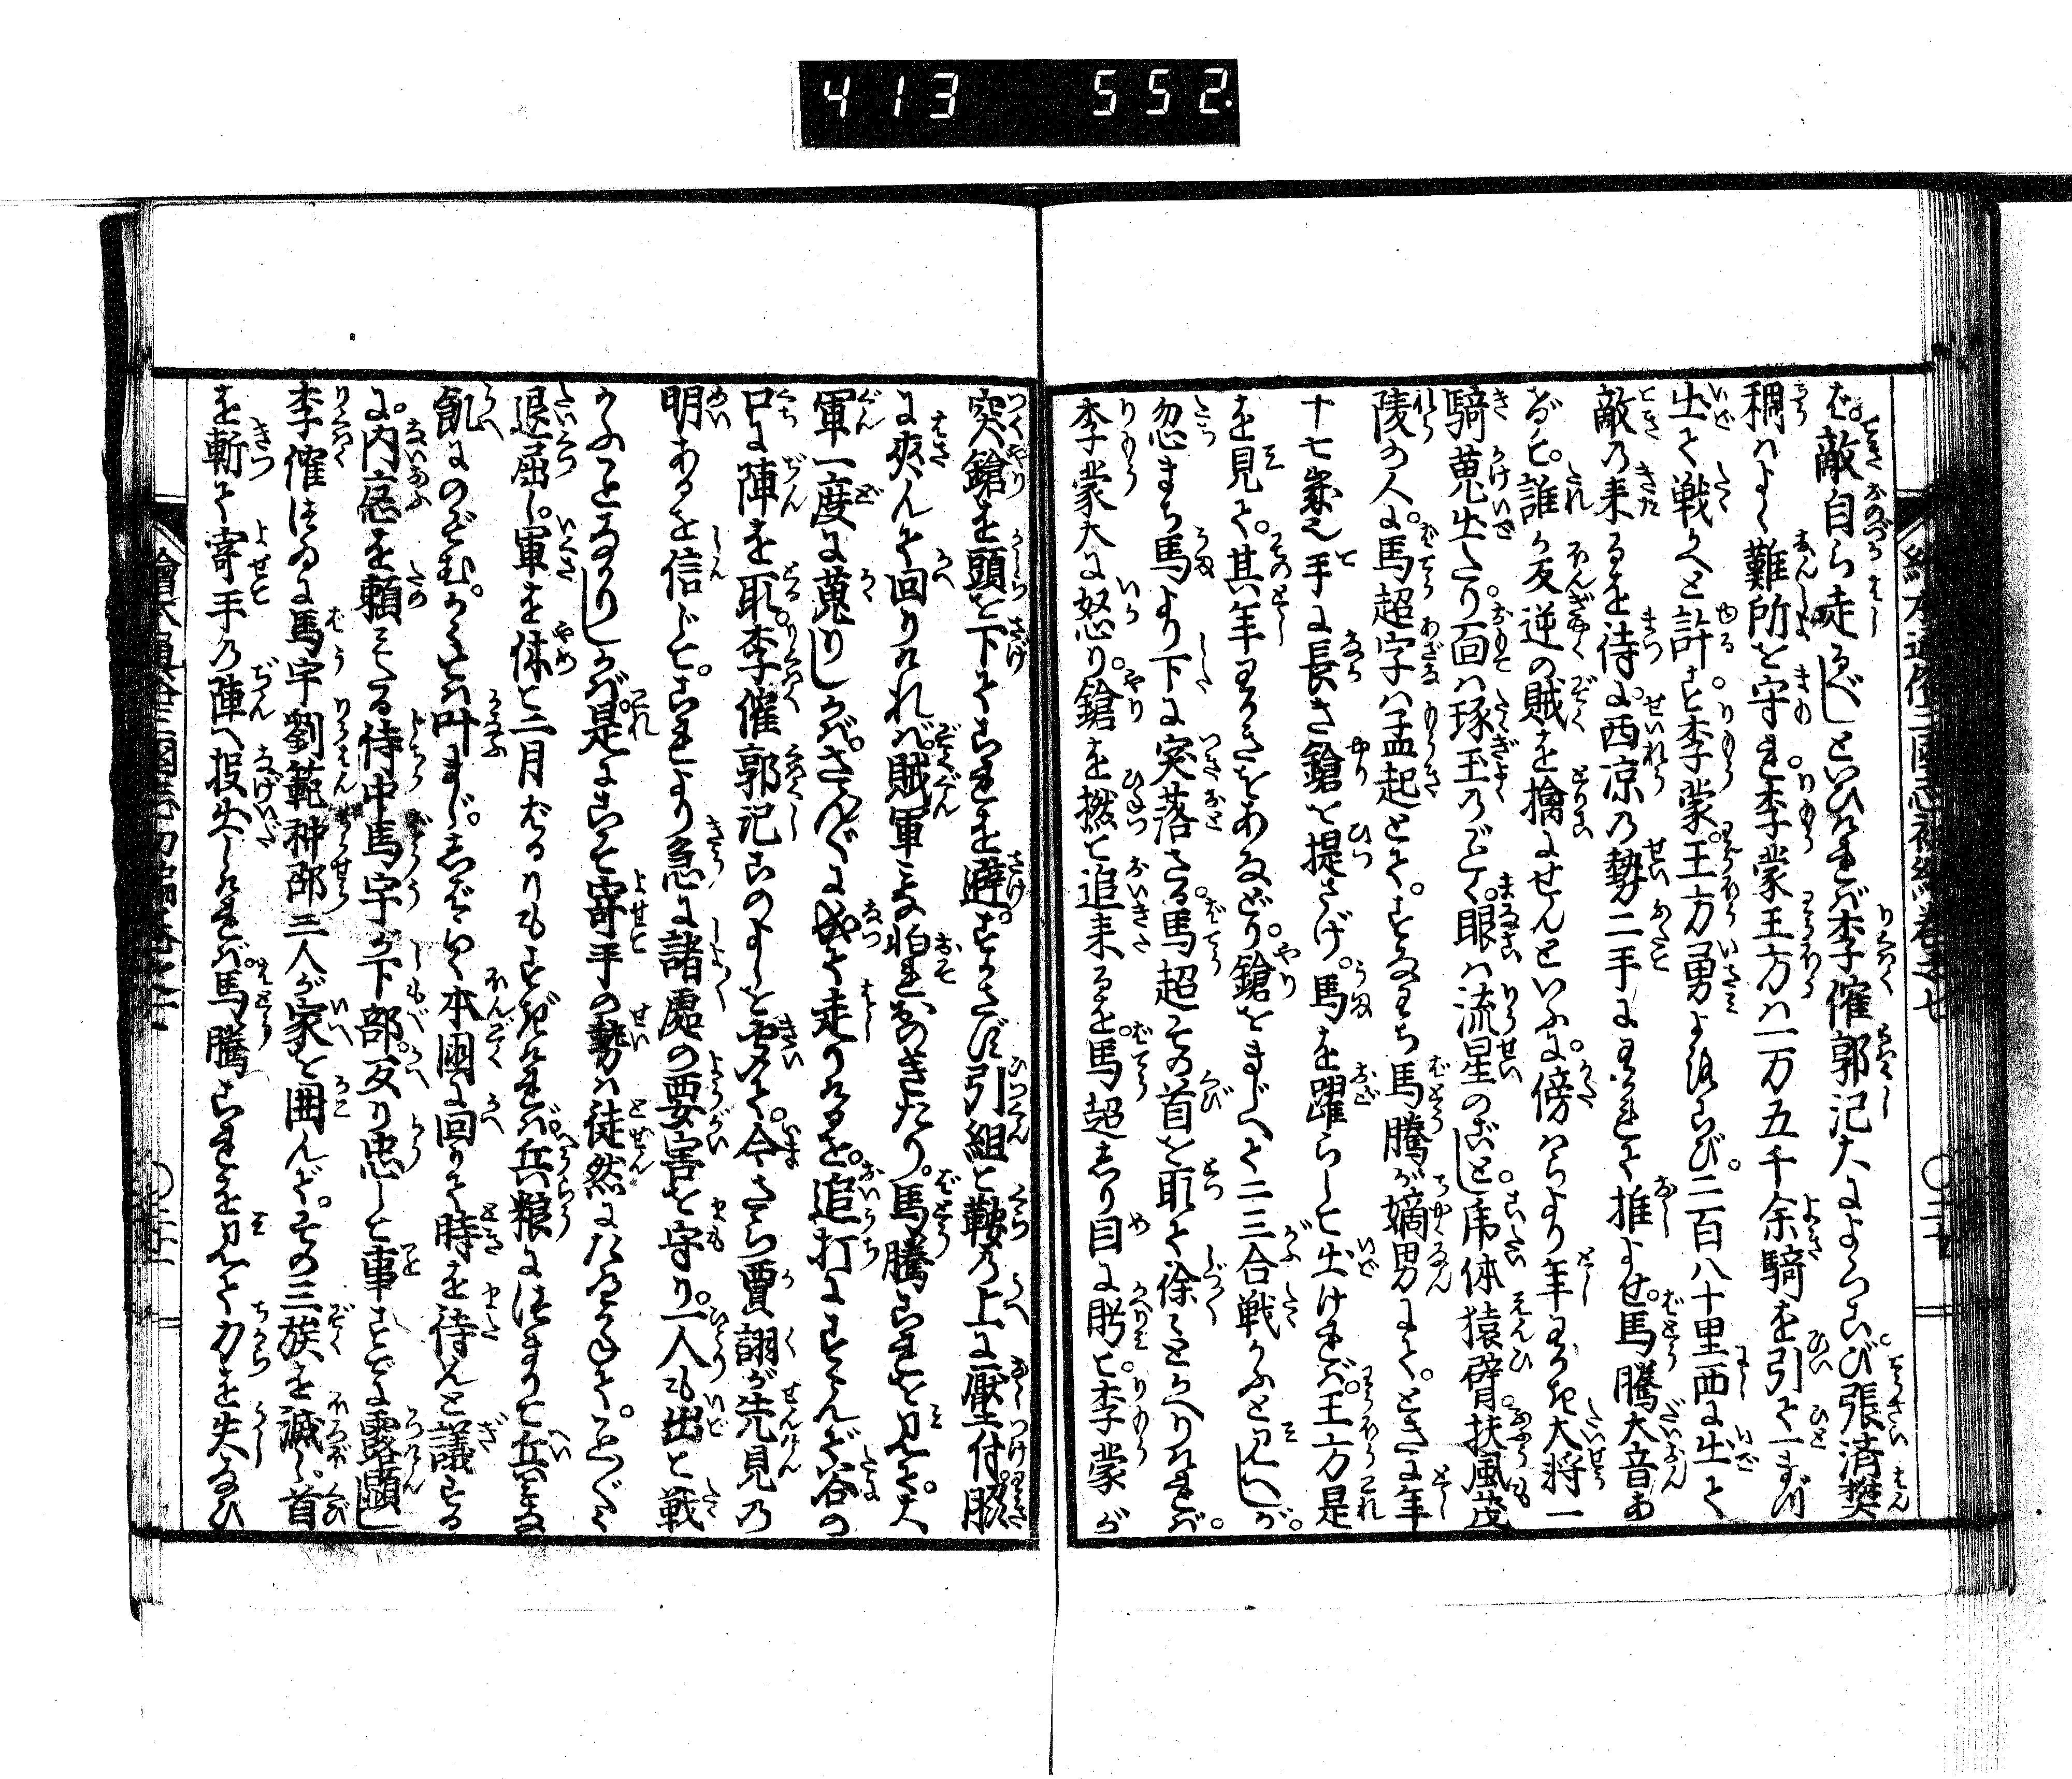 413 552.
ば。敵自ら走るべしといひければ李傕郭汜大によろこび張済樊
稠はよく難所を守れ。李蒙王方は一万五千余騎を引て一まづ
出て戦へと許す。李蒙。王方勇よろこび。二百八十里西に出て
敵の来るを待に。西凉の勢二手にわかれて推よせ。馬騰大音あ
げて。誰か反逆の賊を擒にせんといふに。傍はらより年わかき大将一
騎蒐出たり。面は琢玉のごく。眼は流星のごとし。虎体猿臂。扶風茂
陵の人に。馬超字は孟起とて。すなわち馬騰が嫡男にて。ときに年
十七歳也手に長き鎗を提さげ。馬を躍らして出ければ。王方是
を見て。其年わかきをあなどり。鎗をまじへて二三合戦かふと見へしが。
忽まち馬より下に突落さる。馬超その首を取て徐々とかへりければ。
李蒙大に怒り。鎗を撚て追来るを。馬超しり目に眄て。李蒙が
突鎗を頭を下てこれを避。すかさず引組て鞍の上に壓付脇
に夾んて回りければ。賊軍みな怕れおのきたり。馬騰これを見て。大
軍一度に蒐りしかば。さんぐに成て走りけるを。追打にすゝんで谷の
口に陣を取。李傕郭汜このよしを聞て。今さら賈詡が先見の
明あるを信じて。これより急に諸處の要害を守り。一人も出て戦
かふことなかりしかば。是にこそ寄手の勢は徒然にたへかねて。ことぐく
退屈し。軍を休て二月ばかりもすぎければ。兵粮につまりて兵みな
飢にのぞむ。かくては叶まじ。しばらく本國に回りて時を待んと議する
に。内應を頼みたる侍中馬宇が下部。反り忠して事すでに露顕し
李傕つゐに馬宇劉範种邵三人が家を囲んで。その三族を滅し。首
を斬て寄手の陣へ投出しければ。馬騰これを見て力を失なひ